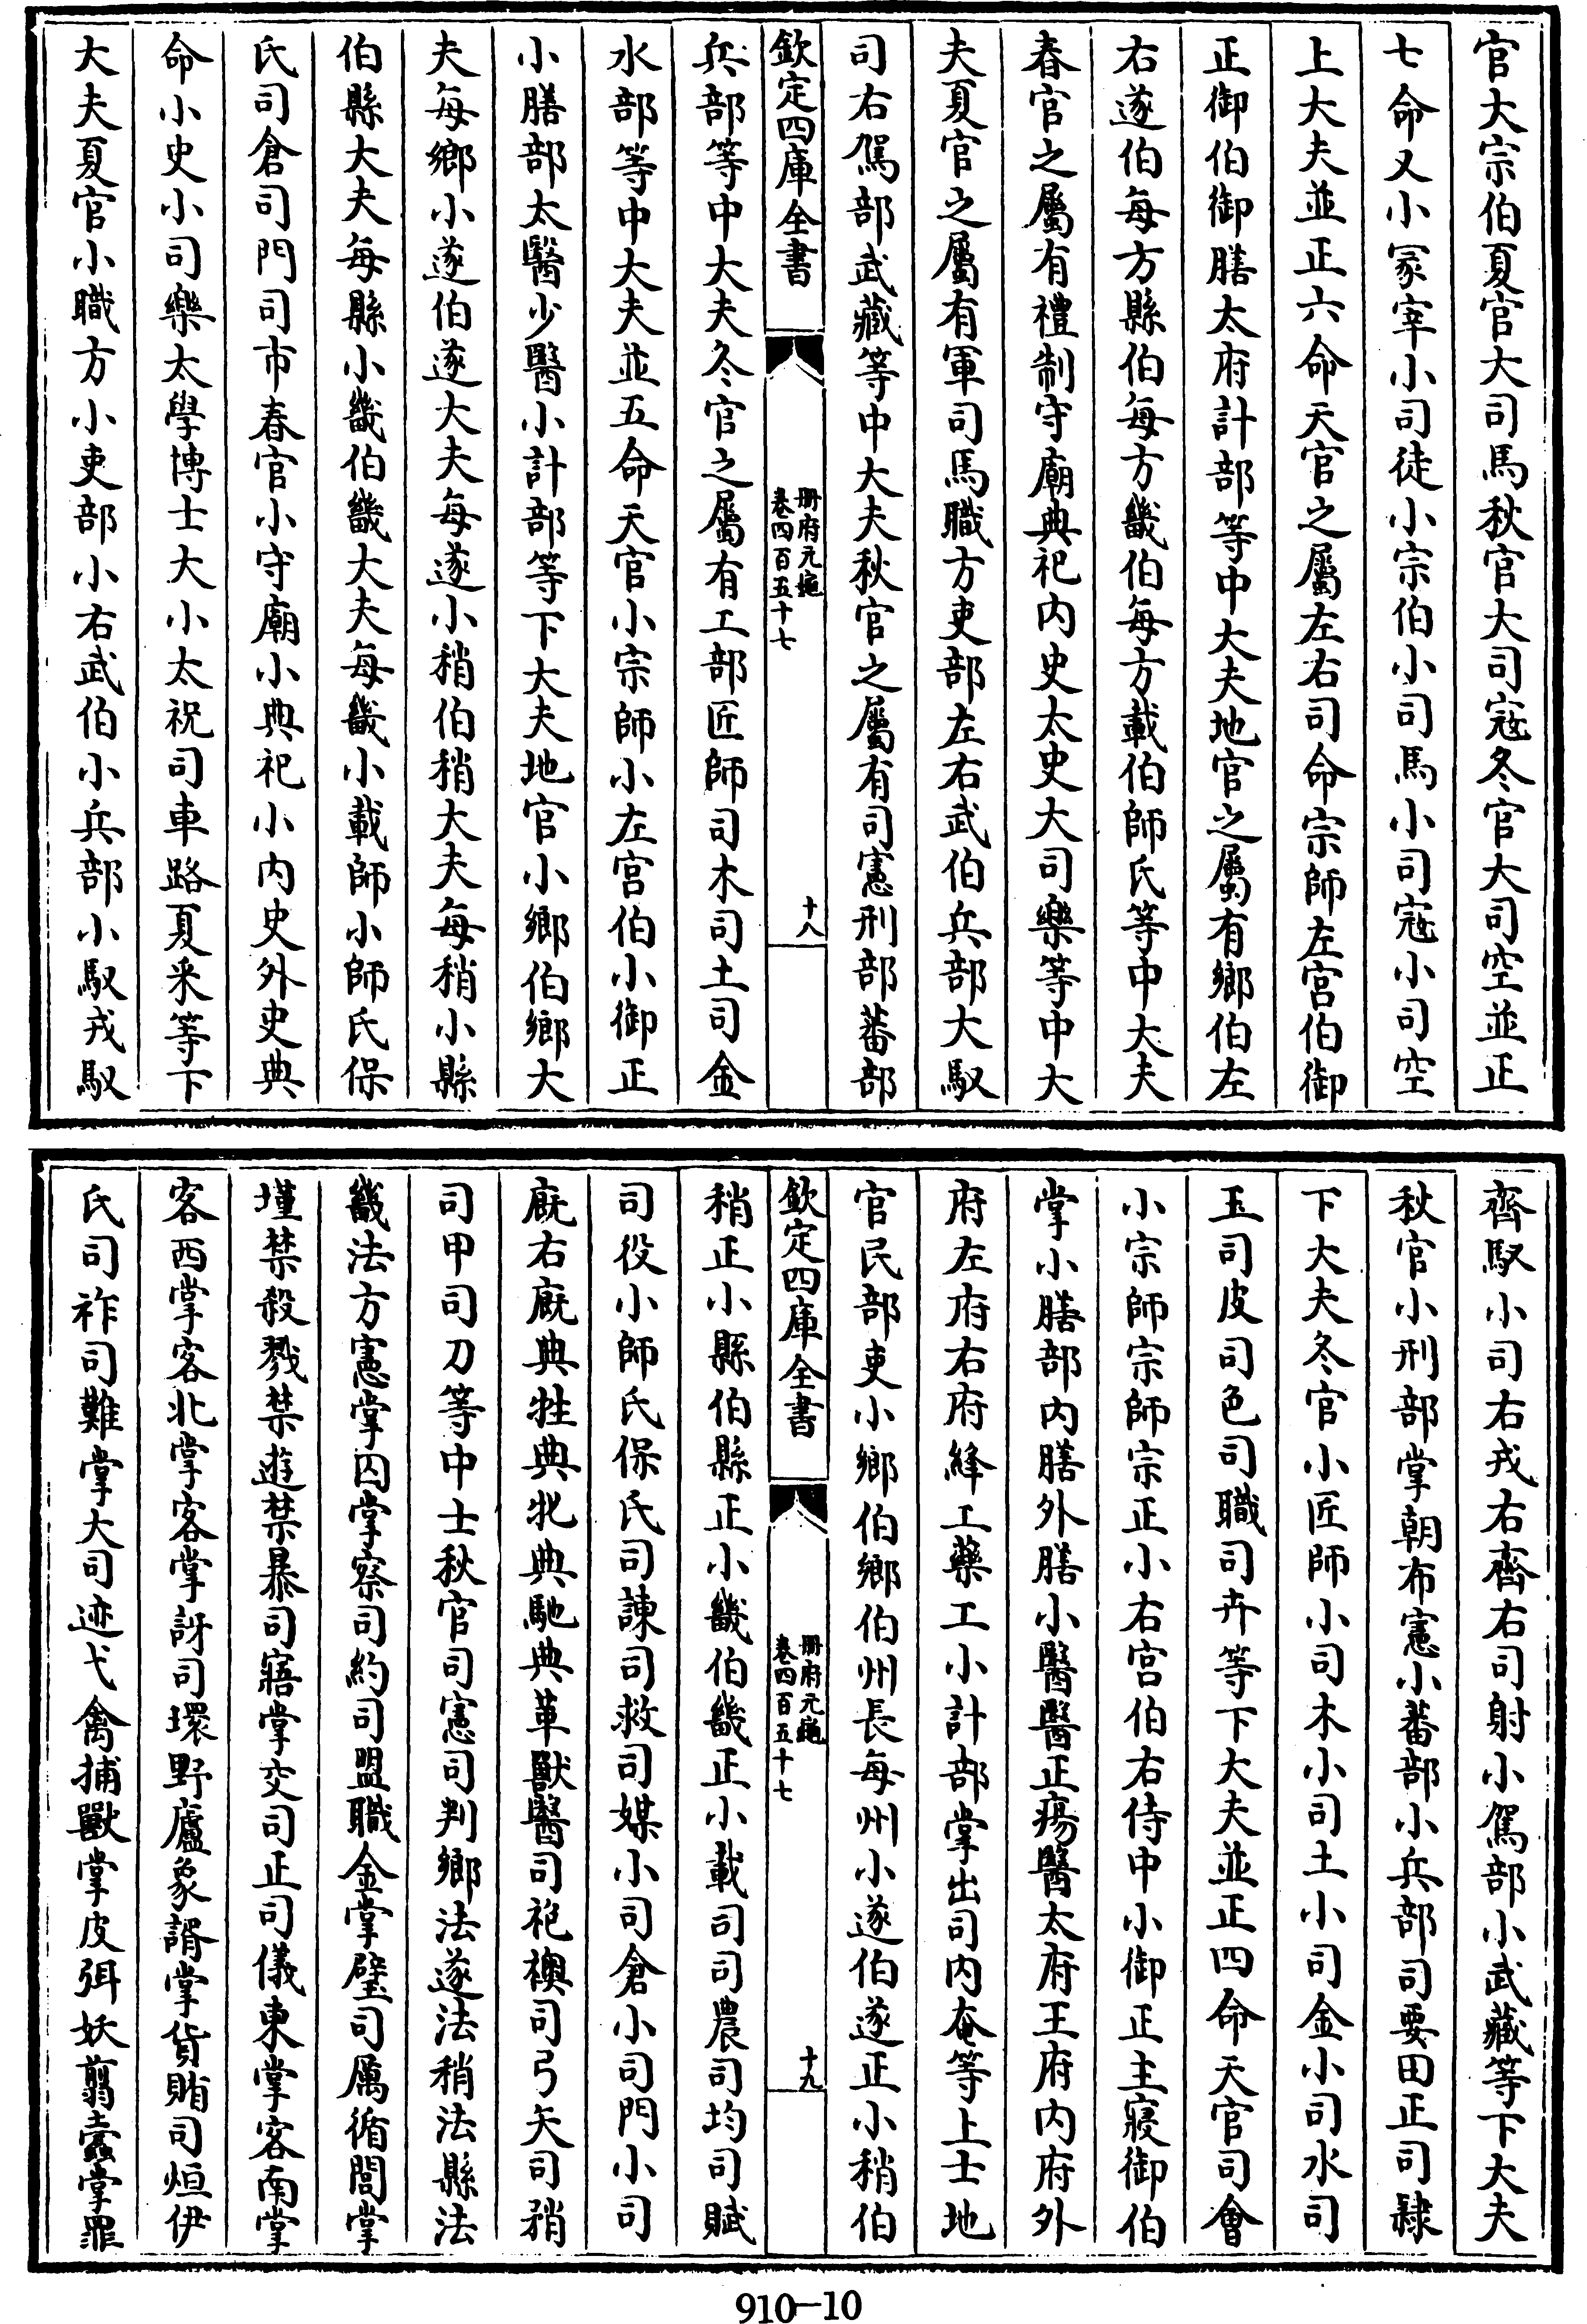 官大宗伯夏官大司馬秋官大司寇冬官大司空並正
七命又小冢宰小司徒小宗伯小司馬小司寇小司空
上大夫並正六命天官之屬左右司命宗師左宮伯御
正御伯御膳太府計部等中大夫地官之屬有鄉伯左
右遂伯每方縣伯每方畿伯每方載伯師氏等中大夫
春官之屬有禮制守廟典祀内史太史大司樂等中大
夫夏官之屬有軍司馬職方吏部左右武伯兵部大馭
司右駕部武藏等中大夫秋官之屬有司憲刑部蕃部
欽定四庫全書
冊府元龜
卷四百五十七
十八
兵部等中大夫冬官之屬有工部匠師司木司土司金
水部等中大夫並五命天官小宗師小左宮伯小御正
小膳部太醫少醫小計部等下大夫地官小鄉伯鄉大
夫每鄉小遂伯遂大夫每遂小稍伯稍大夫每稍小縣
伯縣大夫每縣小畿伯畿大夫每畿小載師小師氏保
氏司倉司門司市春官小守廟小典祀小内史外史典
命小史小司樂太學博士大小太祝司車路夏采等下
大夫夏官小職方小吏部小右武伯小兵部小馭戎馭
齊馭小司右戎右齊右司射小駕部小武藏等下大夫
秋官小刑部掌朝布憲小蕃部小兵部司要田正司隸
下大夫冬官小匠師小司木小司土小司金小司水司
玉司皮司色司職司卉等下大夫並正四命天官司會
小宗師宗師宗正小右宮伯右侍中小御正主寢御伯
掌小膳部内膳外膳小醫醫正瘍醫太府王府内府外
府左府右府縫工藥工小計部掌出司内奄等上士地
官民部吏小鄉伯鄉伯州長每州小遂伯遂正小稍伯
欽定四庫全書
冊府元龜
卷四百五十七
十九
稍正小縣伯縣正小畿伯畿正小載司司農司均司賦
司役小師氏保氏司諫司救司媒小司倉小司門小司
廐右廐典牲典牝典馳典革獸醫司袍襖司弓矢司矟
司甲司刀等中士秋官司憲司判鄉法遂法稍法縣法
畿法方憲掌囚掌察司約司盟職金掌璧司厲循閭掌
墐禁殺戮禁遊禁暴司寤掌交司正司儀東掌客南掌
客西掌客北掌客掌訝司環野廬象諝掌貨賄司烜伊
氏司祚司難掌大司迹弋禽捕獸掌皮弭妖翦蠹掌罪